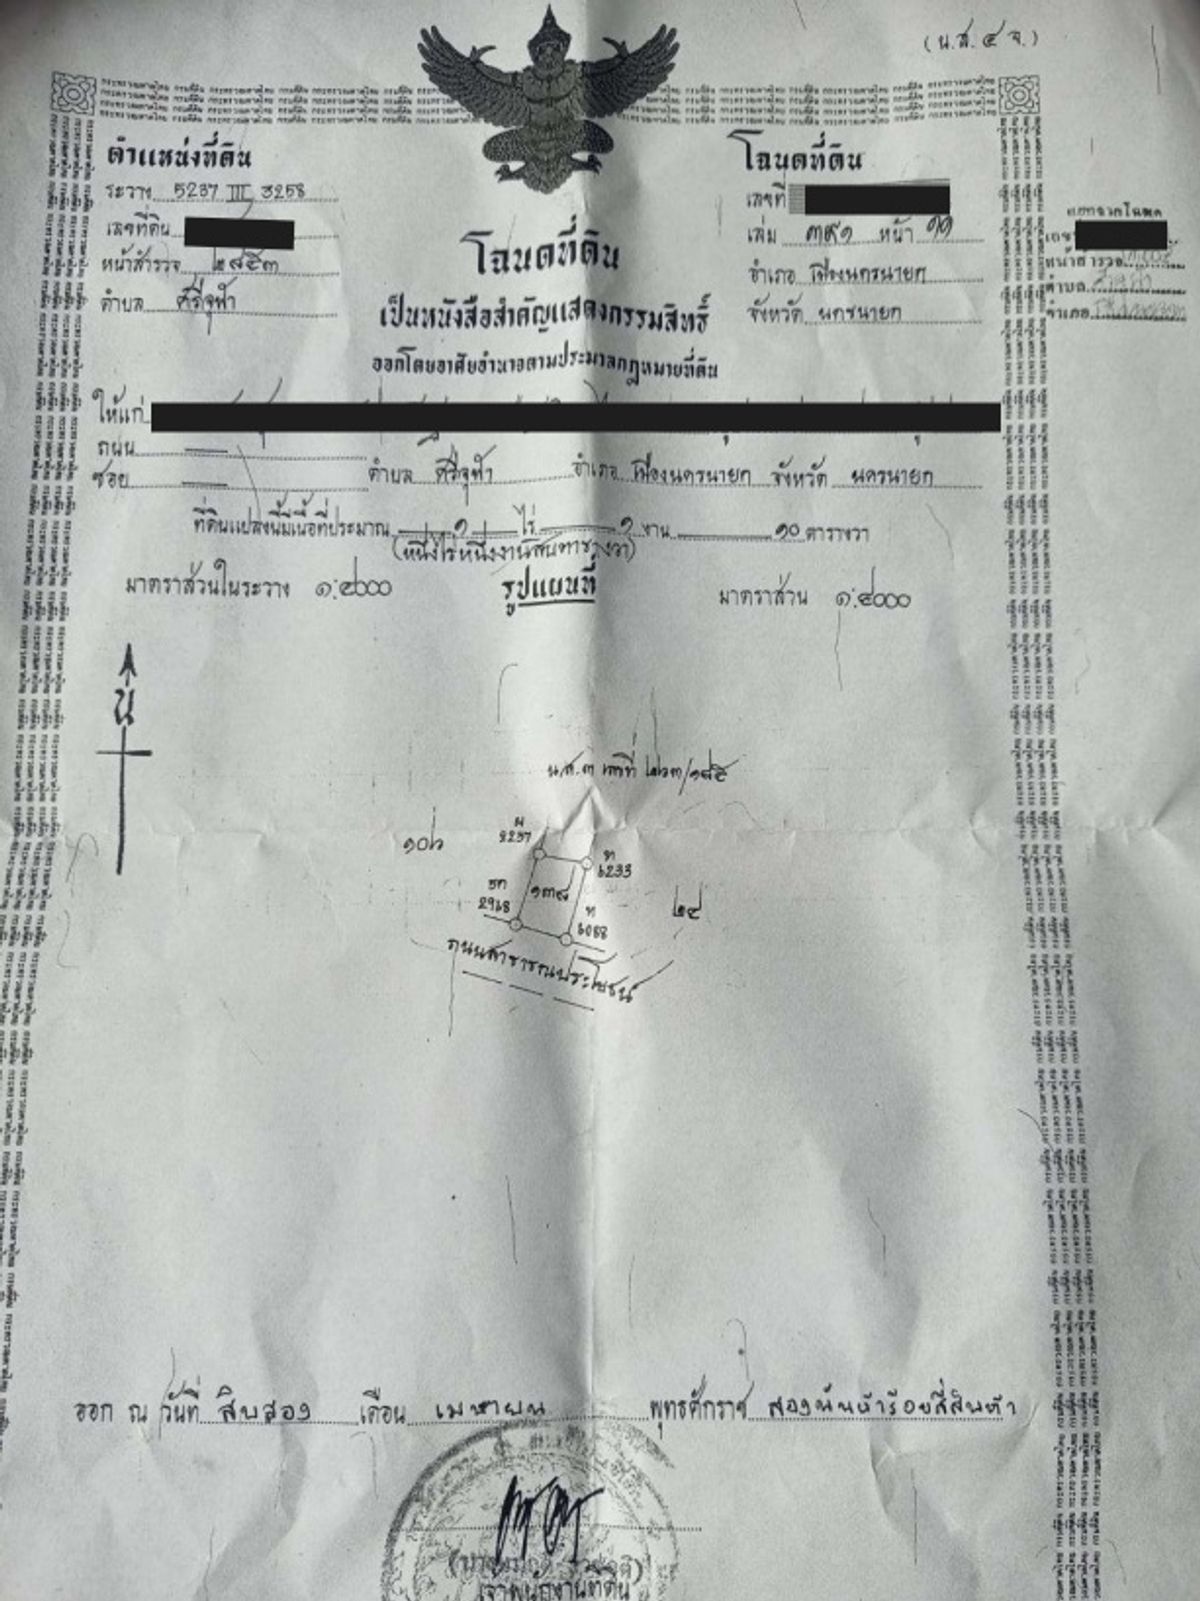 (น.ส.๔ จ.)
ตำแหน่งที่ดิน
ระวาง 5237 III 3258
เลขที่ดิน
หน้าสำรวจ ๒๘๕๓
ตำบล ศรีจุฬา
โฉนดที่ดิน
เลขที่
เล่ม ๓๙๑ หน้า ๑๑
อำเภอ เมืองนครนายก
จังหวัด นครนายก
แยกจากโฉนด
เลขที่
หน้าสำรวจ
ตำบล
อำเภอ
โฉนดที่ดิน
เป็นหนังสือสำคัญแสดงกรรมสิทธิ์
ออกโดยอาศัยอำนาจตามประมวลกฎหมายที่ดิน
ให้แก่
ถนน
ซอย ตำบล ศรีจุฬา อำเภอ เมืองนครนายก จังหวัด นครนายก
ที่ดินแปลงนี้มีเนื้อที่ประมาณ ๑ ไร่ ๑ งาน ๑๐ ตารางวา
(หนึ่งไร่หนึ่งงานสิบตารางวา)
มาตราส่วนในระวาง ๑:๔๐๐๐ รูปแผนที่ มาตราส่วน ๑:๔๐๐๐
น
น.ส.๓ เลขที่ ๒๒๓/๑๘๕
๑๐๖
2237
6233
๑๓๘
2968
6088
๒๔
ถนนสาธารณประโยชน์
ออก ณ วันที่ สิบสอง เดือน เมษายน พุทธศักราช สองพันห้าร้อยสี่สิบห้า
เจ้าพนักงานที่ดิน